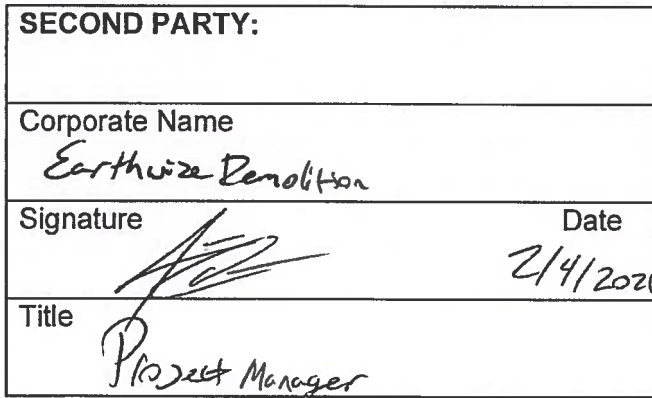 SECOND PARTY:
Corporate Name
Earthwize Demolition
Signature Date
2/4/202
Title
Project Manager